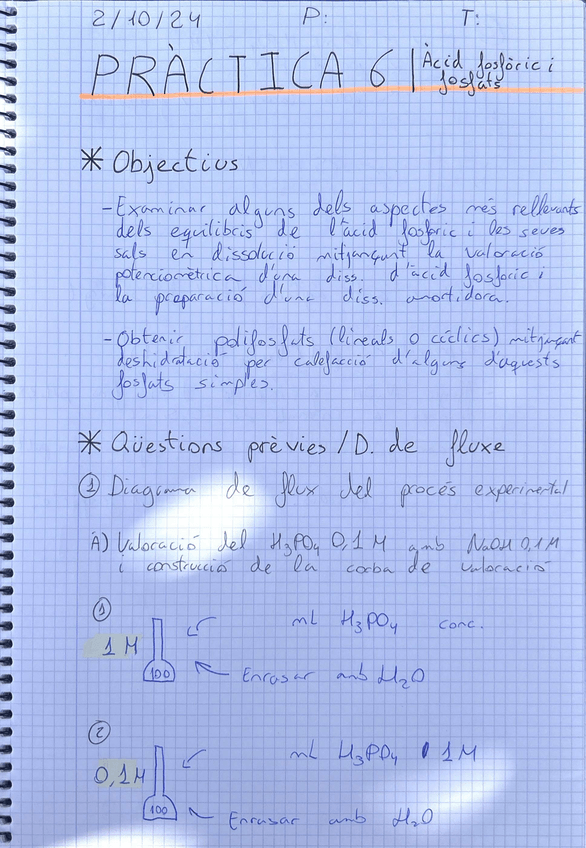 2/10/24 P: T:
PRÀCTICA 6 | Àcid fosfòric i
fosfats
* Objectius
- Examinar alguns dels aspectes més rellevants
dels equilibris de l'àcid fosfòric i les seves
sals en dissolució mitjançant la valoració
potenciomètrica d'una diss. d'àcid fosfòric i
la preparació d'una diss. amortidora.
- Obtenir polifosfats (lineals o cíclics) mitjançant
deshidratació per calefacció d'alguns d'aquests
fosfats simples.
* Qüestions prèvies / D. de fluxe
① Diagrama de flux del procés experimental
A) Valoració del H₃PO₄ 0,1 M amb NaOH 0,1 M
i construcció de la corba de valoració
①
mL H₃PO₄ conc.
1 M
100
Enrasar amb H₂O
②
mL H₃PO₄ 1 M
0,1 M
100
Enrasar amb H₂O